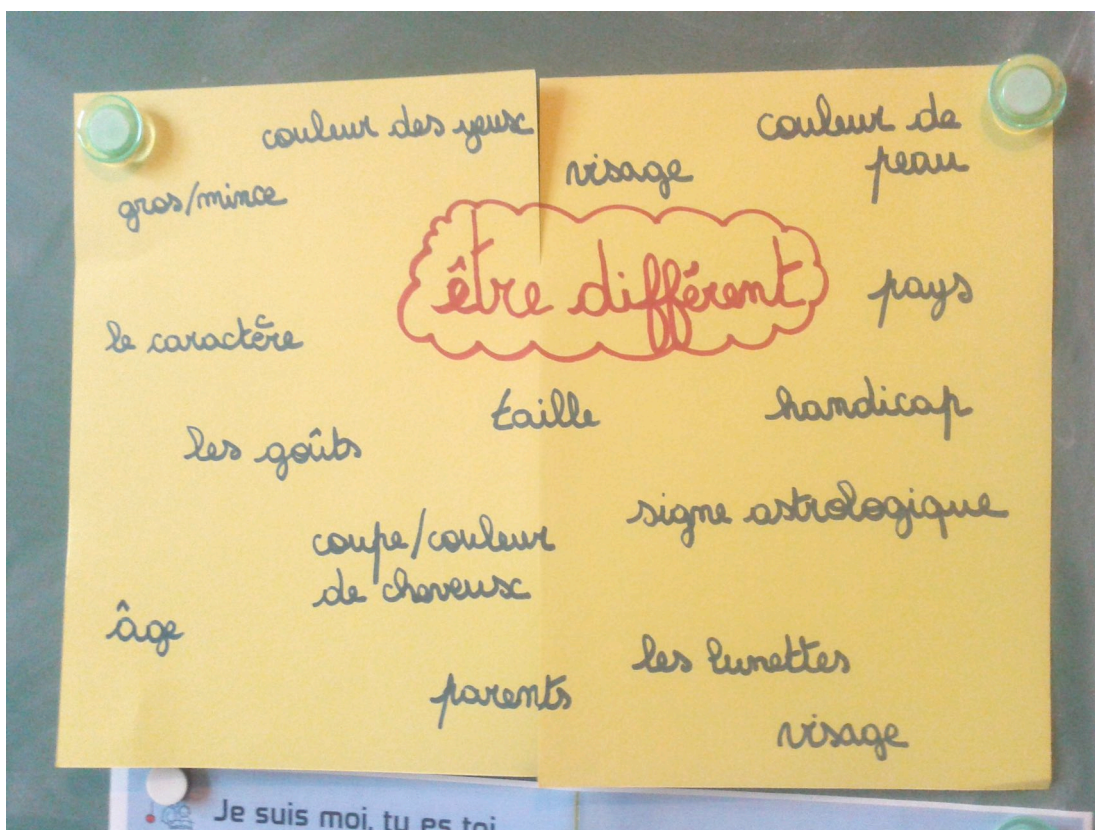 couleur des yeux
couleur de
peau
visage
gros/mince
être différent
pays
le caractère
taille
handicap
les goûts
signe astrologique
coupe/couleur
de cheveux
âge
les lunettes
parents
visage
Je suis moi, tu es toi